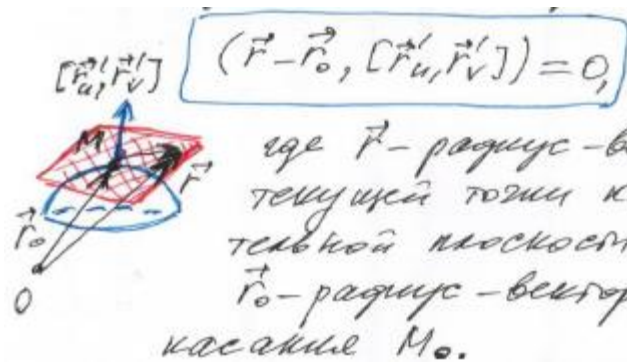 (r⃗ - r⃗₀, [r⃗ᵤ′, r⃗ᵥ′]) = 0,
[r⃗ᵤ′, r⃗ᵥ′]
M
r⃗
r⃗₀
O
где r⃗ - радиус-ве
текущей точки к
тельной плоскости
r⃗₀ - радиус-вектор
касания M₀.